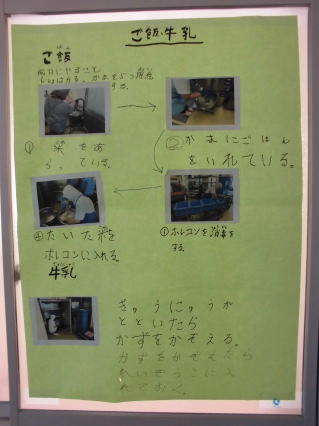 ご飯・牛乳
ご飯
はん
① 米をあ
らっている。
② かまにごはん
をいれている。
③ ホレコンを消毒を
する。
④ たいた米を
ホレコンに入れる。
牛乳
ぎゅうにゅうが
とどいたら
かずをかぞえる。
かずをかぞえたら
れいぞうこに入
れておく。